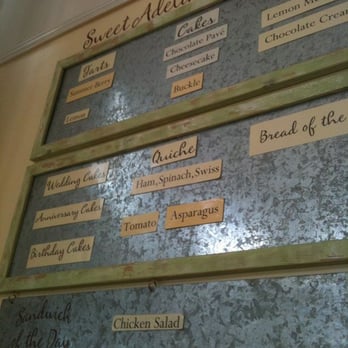 Sweet
Tarts
Summer Berry
Lemon
Cakes
Chocolate Pavé
Cheesecake
Buckle
Lemon
Chocolate
Wedding Cakes
Anniversary Cakes
Birthday Cakes
Quiche
Ham, Spinach, Swiss
Tomato
Asparagus
Bread of the
Sandwich
of the Day
Chicken Salad